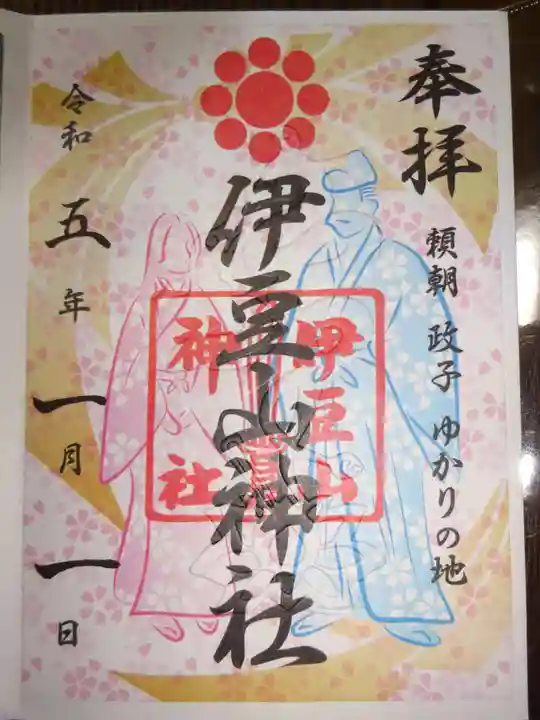 奉拝
頼朝 政子 ゆかりの地
伊豆山神社
伊豆山
神社
令和五年一月一日